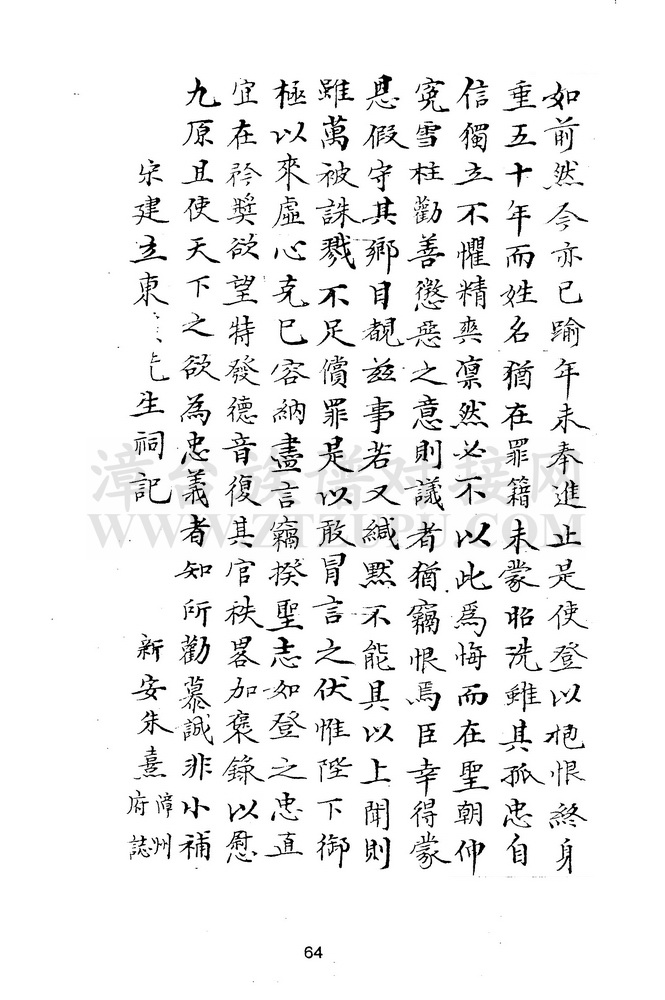 如前然今亦已踰年未奉進止是使登以抱恨終身
重五十年而姓名猶在罪籍未蒙昭洗雖其孤忠自
信獨立不懼精爽凛然必不以此爲悔而在聖朝伸
寃雪枉勸善懲惡之意則議者猶竊恨焉臣幸得蒙
恩假守其鄉目覩茲事若又緘黙不能具以上聞則
雖萬被誅戮不足償罪是以敢冒言之伏惟陛下御
極以來虛心克巳容納盡言竊揆聖志如登之忠直
宜在矜奬欲望特發德音復其官秩畧加褒錄以慰
九原且使天下之欲為忠義者知所勸慕誠非小補
宋建立東先生祠記 新安朱熹 漳州府誌
漳台族谱对接网
WWW.ZTZUPU.COM
64